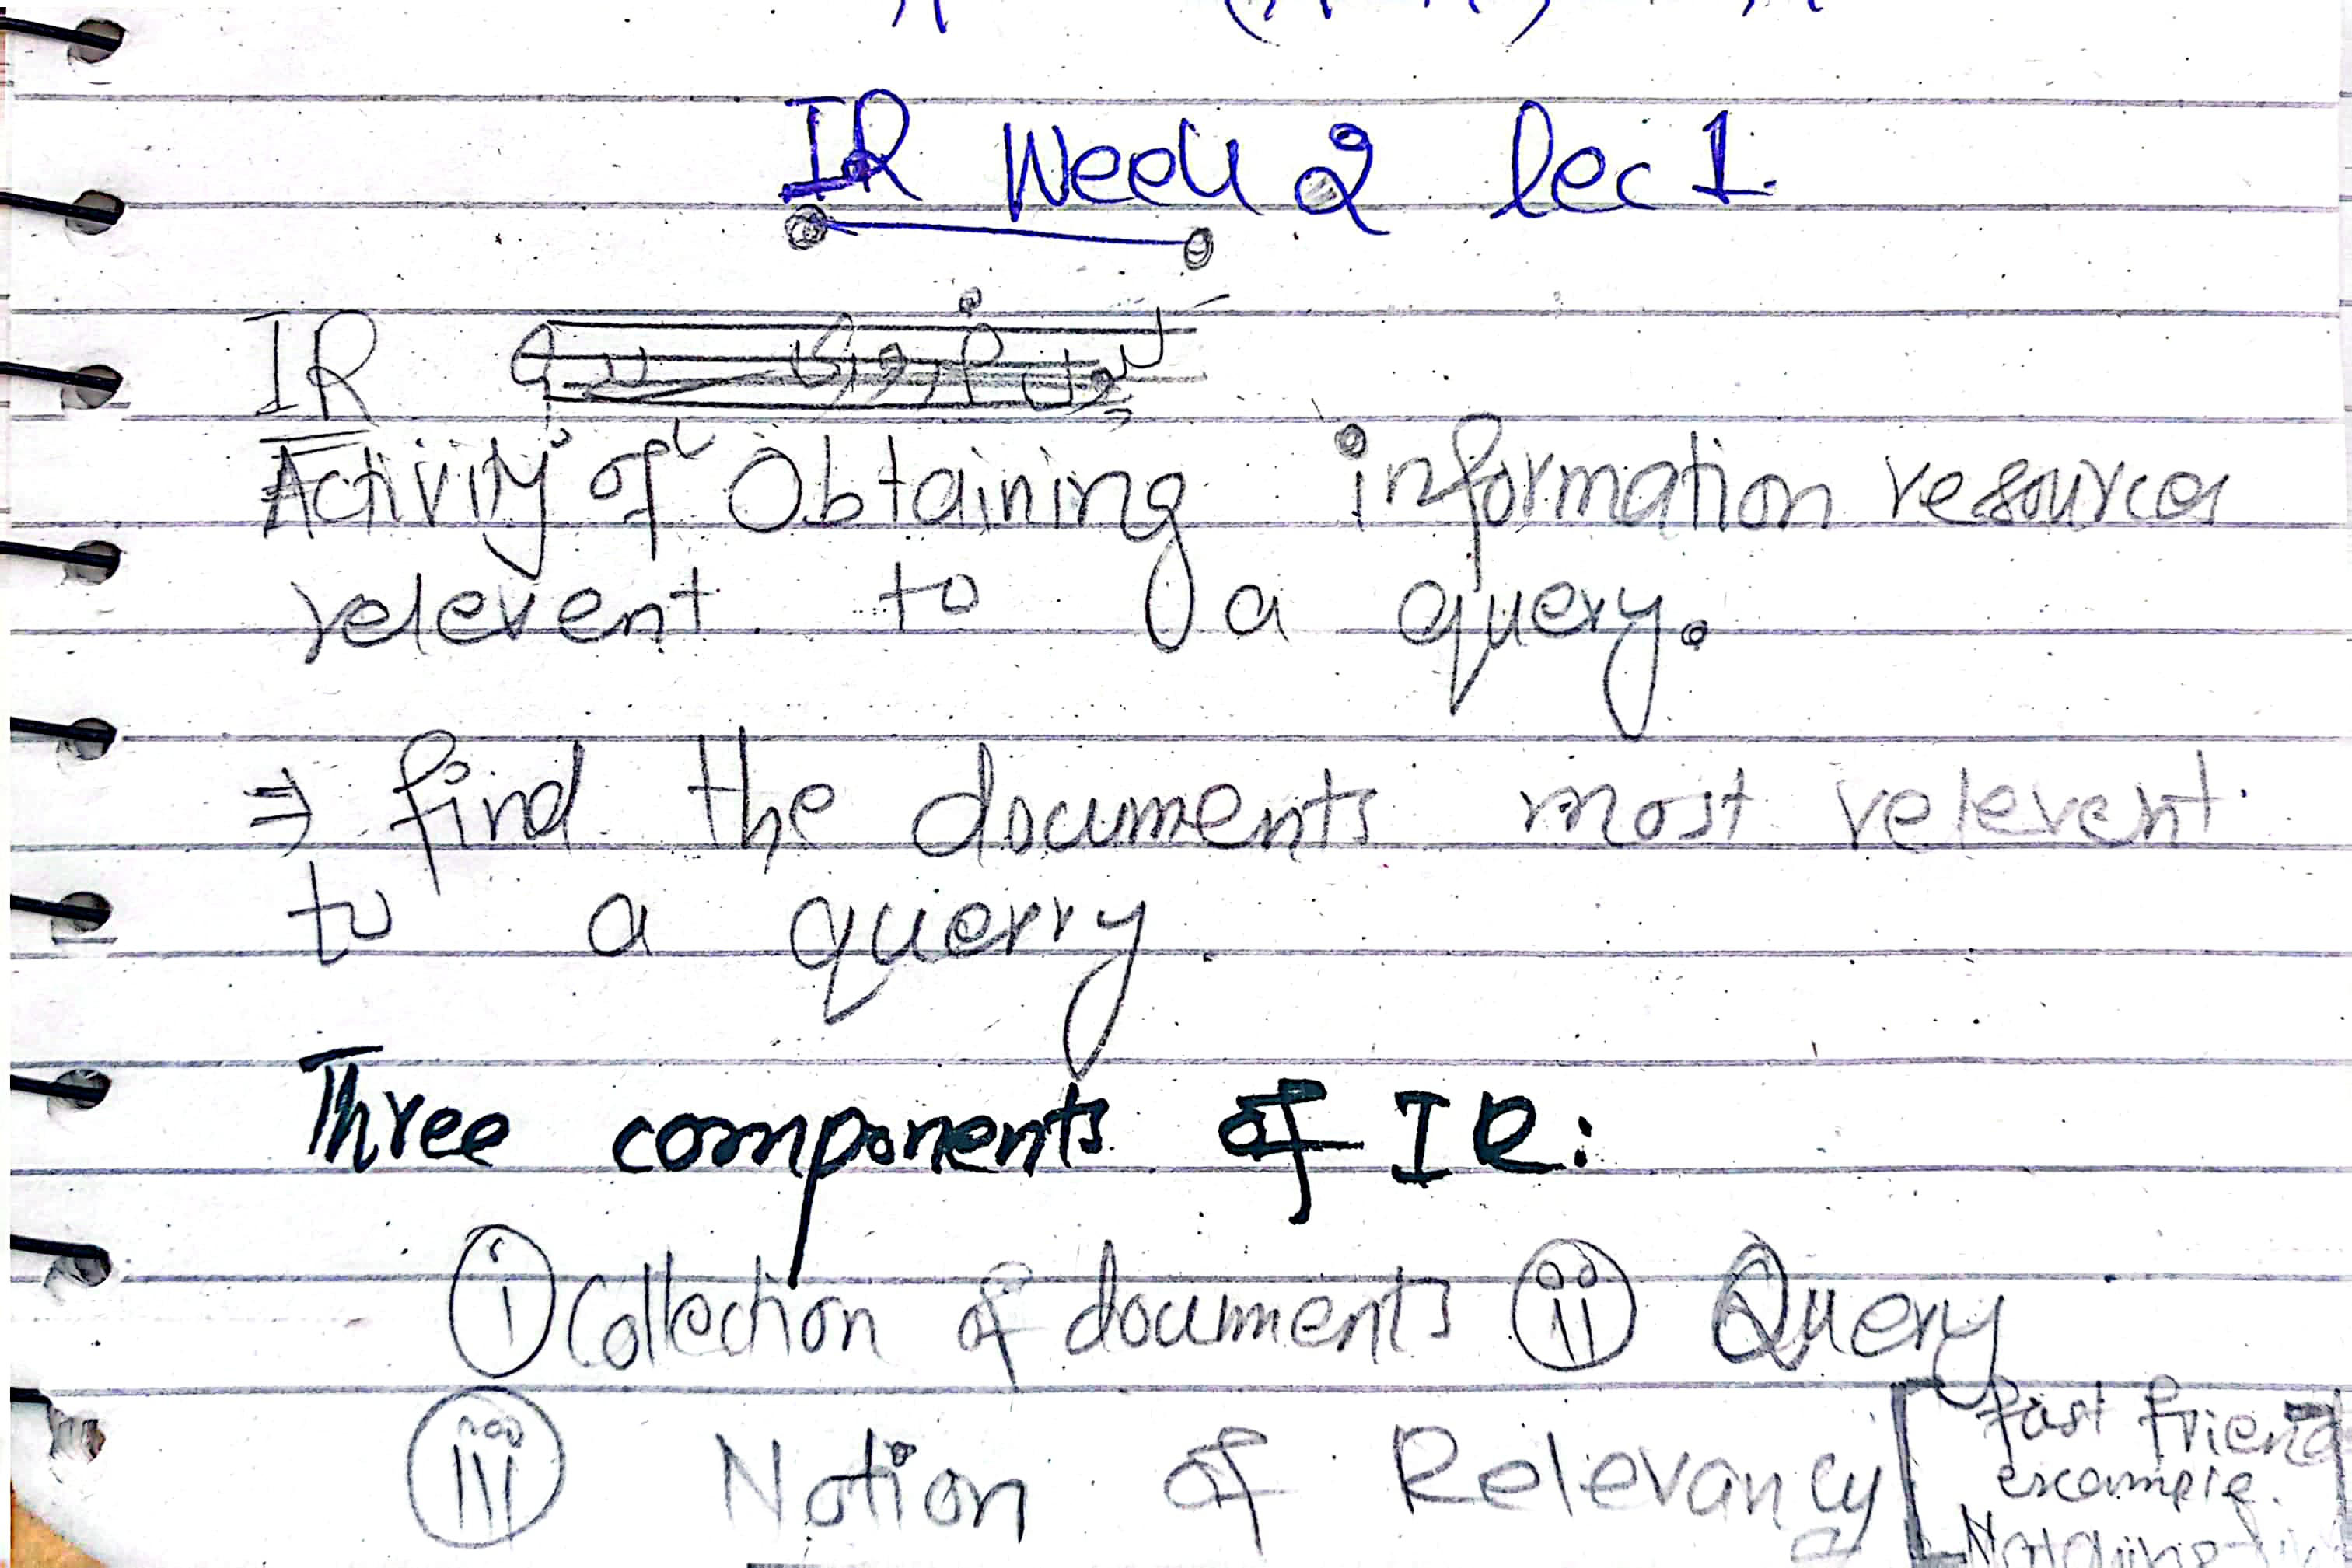 IR Week 2 lec 1.
IR
Activity of Obtaining information resources
relevent to a query.
⇒ find the documents most relevent
to a querry.
Three components of IR:
(i) Collection of documents (ii) Query
(iii) Notion of Relevancy [ fast friend
example.